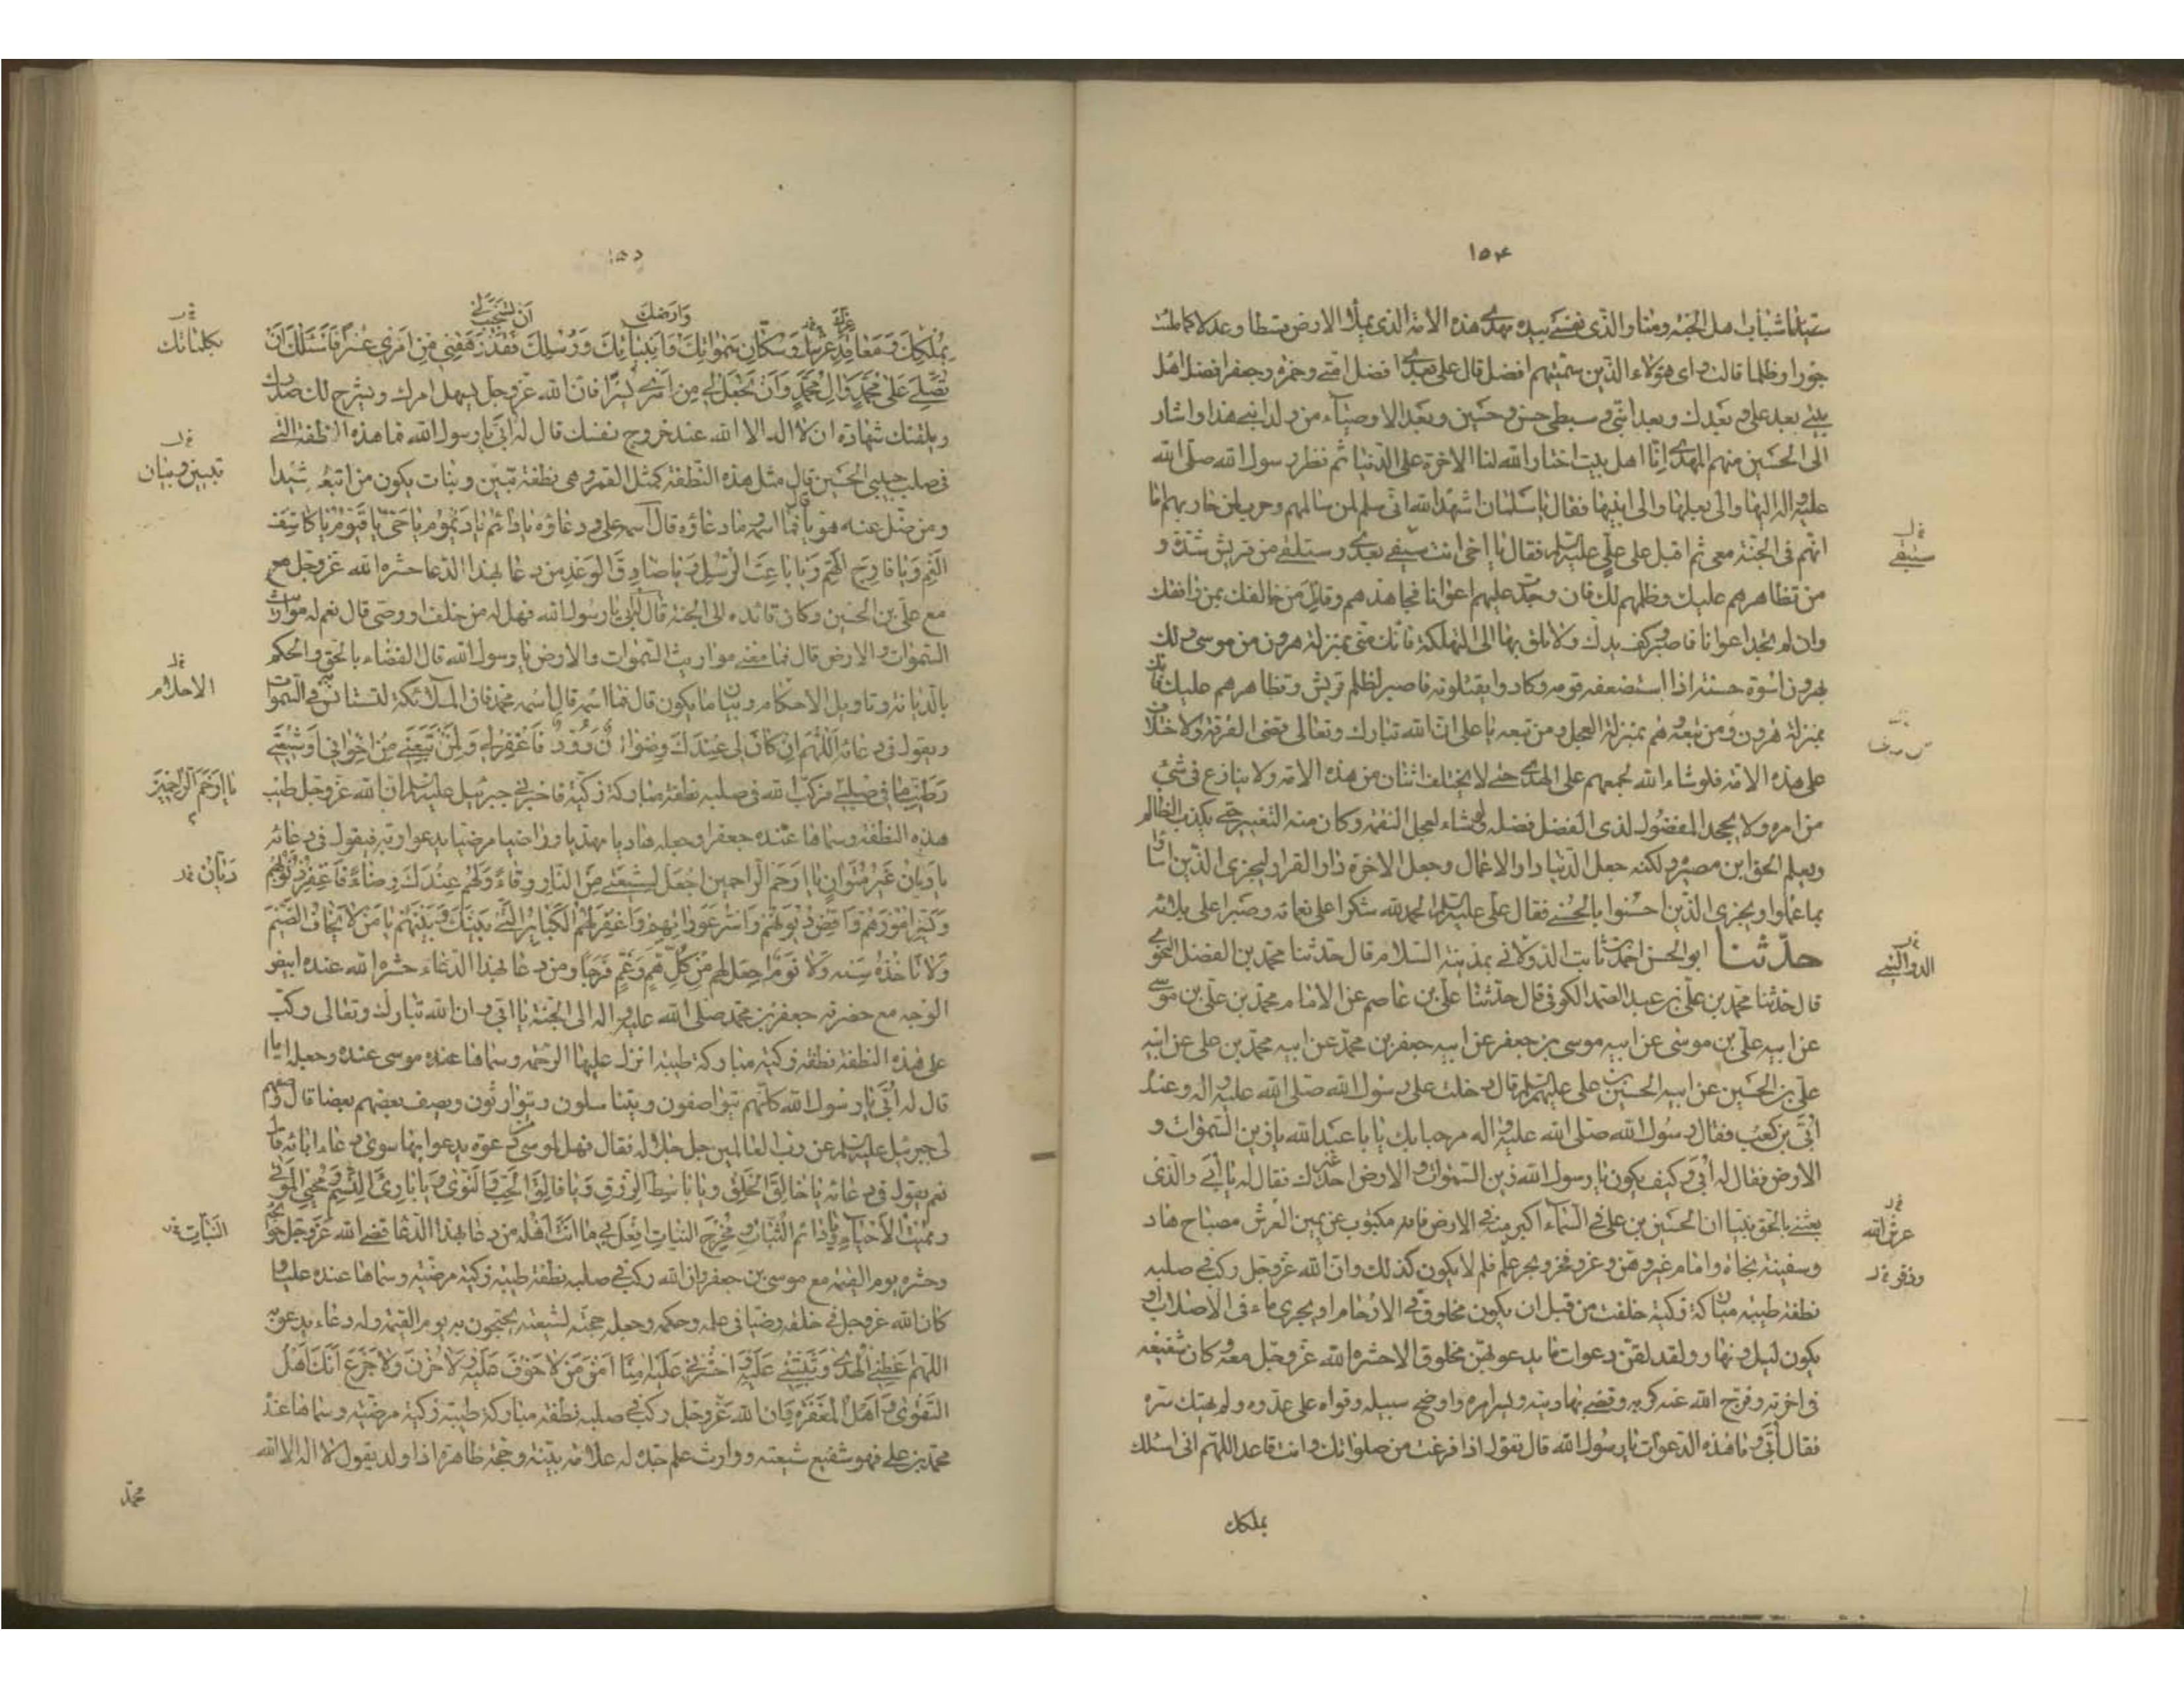 ١٥۴
سيدا شباب اهل الجنة ومنا والذى نفسى بيده مهدى هذه الامة الذى يملأ الارض قسطا وعدلا كما ملئت
جورا وظلما قالت واى هؤلاء الذين سميتهم افضل قال على بعدى افضل امتى وحمزة وجعفر افضل اهل
بيتى بعد على وبعدك وبعد ابنى وسبطى حسن وحسين وبعد الاوصياء من ولد ابنى هذا واشار
الى الحسين منهم المهدى انا اهل بيت اختار الله لنا الاخرة على الدنيا ثم نظر رسول الله صلى الله
عليه واله اليها والى بعلها والى ابنيها فقال يا سلمان اشهد الله انى سلم لمن سالمهم وحرب لمن حاربهم اما
انهم فى الجنة معى ثم اقبل على على عليه السلم فقال يا اخى انت ستبقى بعدى وستلقى من قريش شدة و
ستبقى
من تظاهرهم عليك وظلمهم لك فان وجدت عليهم اعوانا فجاهدهم وقاتل من خالفك بمن وافقك
وان لم تجد اعوانا فاصبر وكف يدك ولا تلق بها الى التهلكة فانك منى بمنزلة هرون من موسى ولك
بهرون اسوة حسنة اذا استضعفه قومه وكادوا يقتلونه فاصبر لظلم قريش وتظاهرهم عليك فانك
بمنزلة هرون ومن تبعه وهم بمنزلة العجل ومن تبعه يا على ان الله تبارك وتعالى قضى الفرقة والاختلاف
على هذه الامة فلو شاء الله لجمعهم على الهدى حتى لا يختلف اثنان من هذه الامة ولا ينازع فى شئ
من امره ولا يجحد المفضول لذى الفضل فضله ولو شاء لعجل النقمة وكان منه التغيير حتى يكذب الظالم
ويعلم الحق اين مصيره ولكنه جعل الدنيا دار الاعمال وجعل الاخرة دار القرار ليجزى الذين اساؤا
بما عملوا ويجزى الذين احسنوا بالحسنى فقال على عليه السلم الحمد لله شكرا على نعمائه وصبرا على بلائه
حدثنا ابو الحسن احمد بن ثابت الدولانى بمدينة السلام قال حدثنا محمد بن الفضل النحوى
الدواليبى
قال حدثنا محمد بن على بن عبد الصمد الكوفى قال حدثنا على بن عاصم عن الامام محمد بن على بن موسى
عن ابيه على بن موسى عن ابيه موسى بن جعفر عن ابيه جعفر بن محمد عن ابيه محمد بن على عن ابيه
على بن الحسين عن ابيه الحسين بن على عليهم السلم قال دخلت على رسول الله صلى الله عليه واله وعنده
ابى بن كعب فقال رسول الله صلى الله عليه واله مرحبا بك يا با عبد الله يا زين السموات و
الارض فقال له ابى وكيف يكون يا رسول الله زين السموات والارض احد غيرك فقال له يا ابى والذى
بعثنى بالحق نبيا ان الحسين بن على فى السماء اكبر منه فى الارض فانه مكتوب عن يمين العرش مصباح هاد
عرش الله
وسفينة نجاة وامام غير وهن وعز وفخر وبحر علم فلم لا يكون كذلك وان الله عز وجل ركب فى صلبه
نطفة طيبة مباركة زكية خلقت من قبل ان يكون مخلوق فى الارحام او يجرى ماء فى الاصلاب او
يكون ليل ونهار ولقد لقن دعوات ما يدعو بهن مخلوق الا حشره الله عز وجل معه وكان شفيعه
فى اخرته وفرج الله عنه كربه وقضى بها دينه ويسر امره واوضح سبيله وقواه على عدوه ولم يهتك ستره
فقال ابى وما هذه الدعوات يا رسول الله قال تقول اذا فرغت من صلواتك وانت قاعد اللهم انى اسئلك
بملكك
١٥٥
وارضك
ان تستجيب لى
بملكك ومعاقد عزك وسكان سمواتك وانبيائك ورسلك فقد رهقنى من امرى عسرا فاسئلك ان
بكلماتك
تصلى على محمد وال محمد وان تجعل لى من امرى يسرا فان الله عز وجل يسهل امرك ويشرح لك صدرك
ويلقنك شهادة ان لا اله الا الله عند خروج نفسك قال له ابى يا رسول الله فما هذه النطفة التى
فى صلب حبيبى الحسين قال مثل هذه النطفة كمثل القمر وهى نطفة تبيين وبنات يكون من اتبعه رشيدا
تبيين وبيان
ومن ضل عنه هويا قال فما اسمه وما دعاؤه قال اسمه على ودعاؤه يا دائم يا ديموم يا حى يا قيوم يا كاشف
الغم ويا فارج الهم ويا باعث الرسل ويا صادق الوعد من دعا بهذا الدعا حشره الله عز وجل مع
مع على بن الحسين وكان قائده الى الجنة قال ابى يا رسول الله فهل له من خلف او وصى قال نعم له مواريث
السموات والارض قال فما معنى مواريث السموات والارض يا رسول الله قال القضاء بالحق والحكم
بالديانة وتاويل الاحكام وبيان ما يكون قال فما اسمه قال اسمه محمد فان الملائكة لتستانس به فى السموات
الاحلام
ويقول فى دعائه اللهم ان كان لى عندك رضوان وود فاغفر لى ولمن تبعنى من اخوانى وشيعتى
وطيب ما فى صلبى فركب الله فى صلبه نطفة مباركة زكية فاخبرنى جبرئيل عليه السلم ان الله عز وجل طيب
يا ارحم الراحمين
هذه النطفة وسماها عنده جعفرا وجعله هاديا مهديا وراضيا مرضيا يدعو ربه فيقول فى دعائه
يا ديان غير متوان يا ارحم الراحمين اجعل لشيعتى من النار وقاء ولهم عندك رضاء فاغفر ذنوبهم
ويسر امورهم واقض ديونهم واستر عوراتهم واغفر لهم الكبائر التى بينك وبينهم يا من لا يخاف الضيم
ولا تاخذه سنة ولا نوم اجعل لهم من كل هم وغم فرجا ومن دعا بهذا الدعاء حشره الله عنده ابيض
الوجه مع حضرته جعفر بن محمد صلى الله عليه واله الى الجنة يا ابى ان الله تبارك وتعالى ركب
على هذه النطفة نطفة زكية مباركة طيبة انزل عليها الرحمة وسماها عنده موسى عنده وجعله اماما
قال له ابى يا رسول الله كانهم يتواصفون ويتناسلون ويتوارثون ويصف بعضهم بعضا قال وصفهم
لى جبرئيل عليه السلم عن رب العالمين جل جلاله فقال فهل لموسى من دعوة يدعو بها سوى دعاء ابائه قال
نعم يقول فى دعائه يا خالق الخلق ويا باسط الرزق ويا فالق الحب والنوى ويا بارئ النسم ومحيى الموتى
ومميت الاحياء ويا دائم الثبات ومخرج النبات افعل بى ما انت اهله من دعا بهذا الدعا قضى الله عز وجل حوائجه
وحشره يوم القيمة مع موسى بن جعفر وان الله ركب فى صلبه نطفة طيبة زكية مرضية وسماها عنده عليا و
كان الله عز وجل فى خلقه رضيا فى علمه وحكمه وجعله حجة لشيعته يحتجون به يوم القيمة وله دعاء يدعو به
اللهم اعطنى الهدى وثبتنى عليه واحشرنى عليه امنا امن من لا خوف عليه ولا حزن ولا جزع انك اهل
التقوى واهل المغفرة وان الله عز وجل ركب فى صلبه نطفة مباركة طيبة زكية مرضية وسماها عنده
محمد بن على فهو شفيع شيعته ووارث علم جده له علامة بينة وحجة ظاهرة اذا ولد يقول لا اله الا الله
محمد